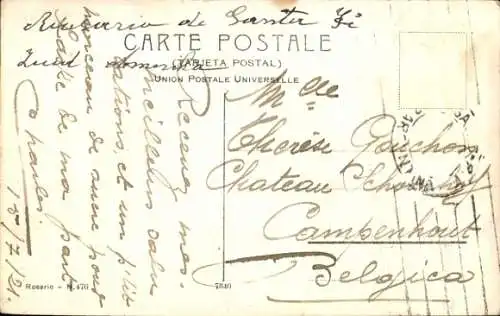 Rosario de Santa Fé
CARTE POSTALE
(TARJETA POSTAL)
UNION POSTALE UNIVERSELLE
Sud
Recevez mes
meilleurs salu
tations, et un p'tit
morceau de sucre pour
de ma part
Charles
15/7/21
Mlle
Thérèse Pouchon
Chateau
Campenhout
Belgica
Rosario - N. 476